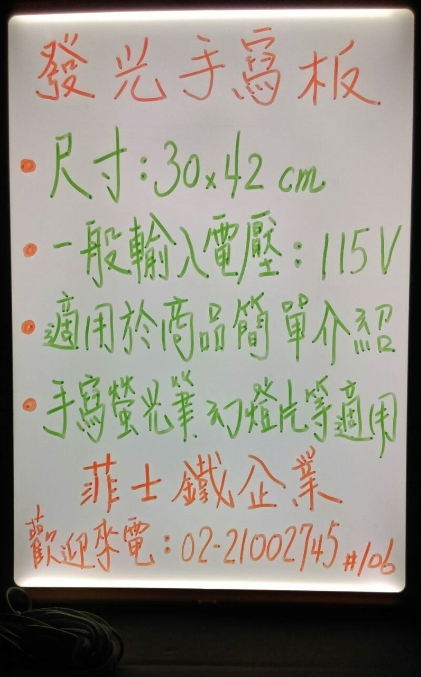 發光手寫板
• 尺寸:30x42 cm
• 一般輸入電壓:115V
• 適用於商品簡單介紹
• 手寫螢光筆 幻燈片等適用
菲士鐵企業
歡迎來電:02-21002745 #106